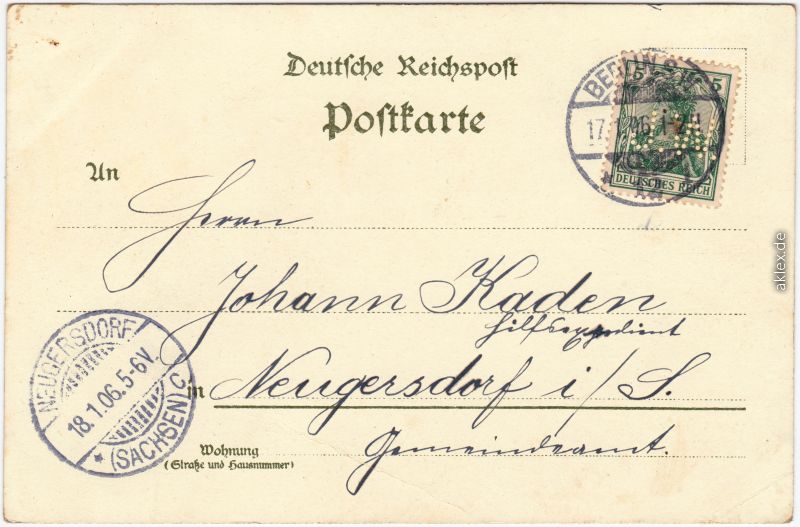 Deutsche Reichspost
Postkarte
BERLIN
17. 06. 1-2N
5 5
DEUTSCHES REICH
An
Herrn
Johann Kaden
Hilfsexpedient
in Neugersdorf i/S.
Gemeindeamt.
Wohnung
(Straße und Hausnummer)
NEUGERSDORF
18.1.06.5-6V.
* (SACHSEN) C
aklex.de